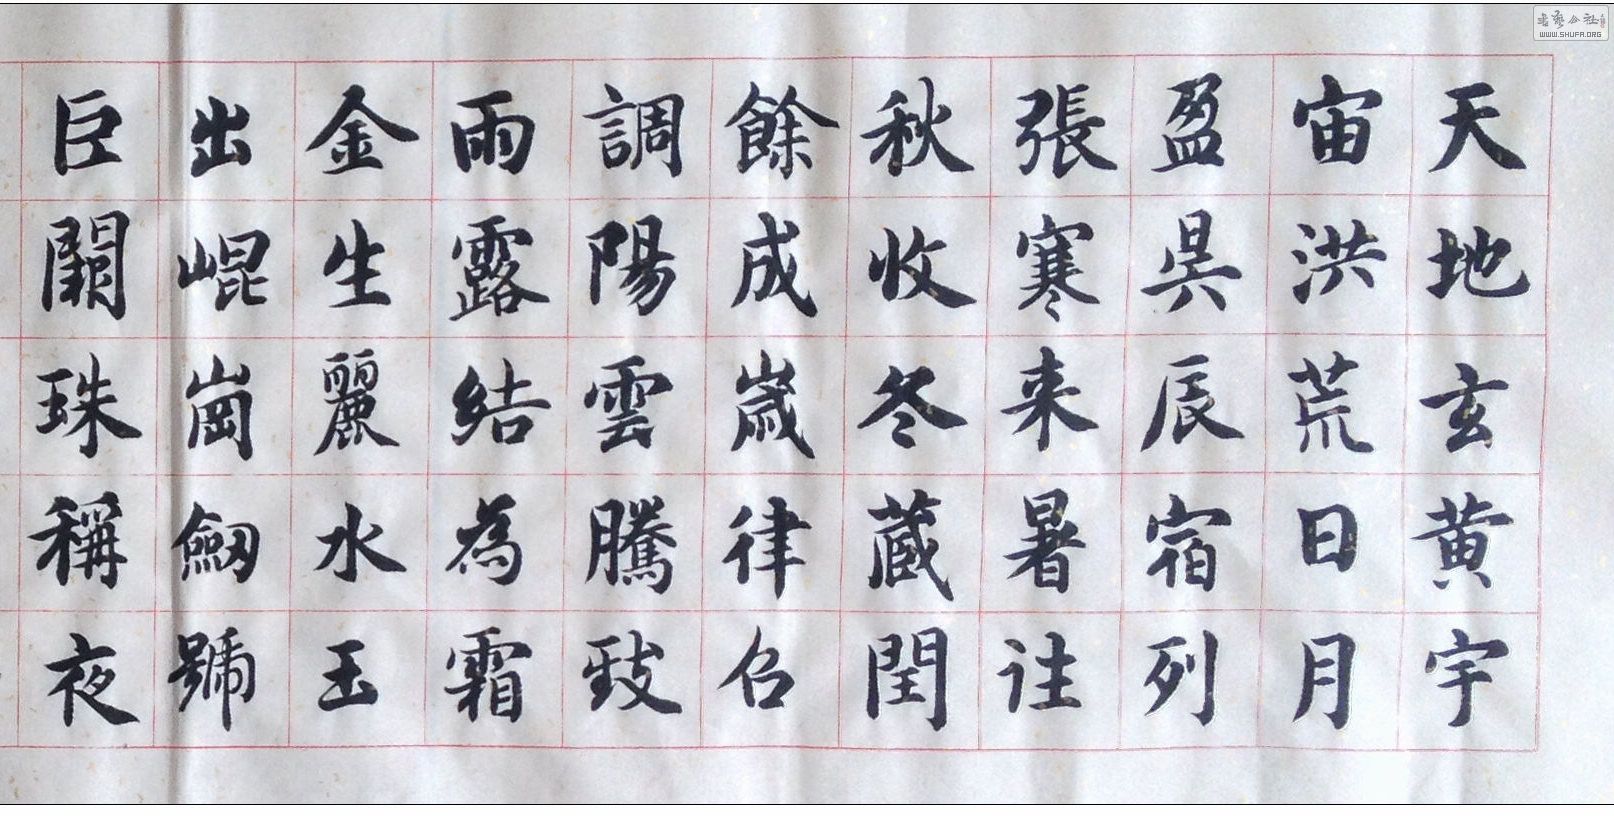 天地玄黄宇
宙洪荒日月
盈昃辰宿列
張寒来暑往
秋收冬蔵閏
餘成歲律召
調陽雲騰致
雨露結為霜
金生麗水玉
出崐崗劒號
巨闕珠稱夜
书艺公社
WWW.SHUFA.ORG